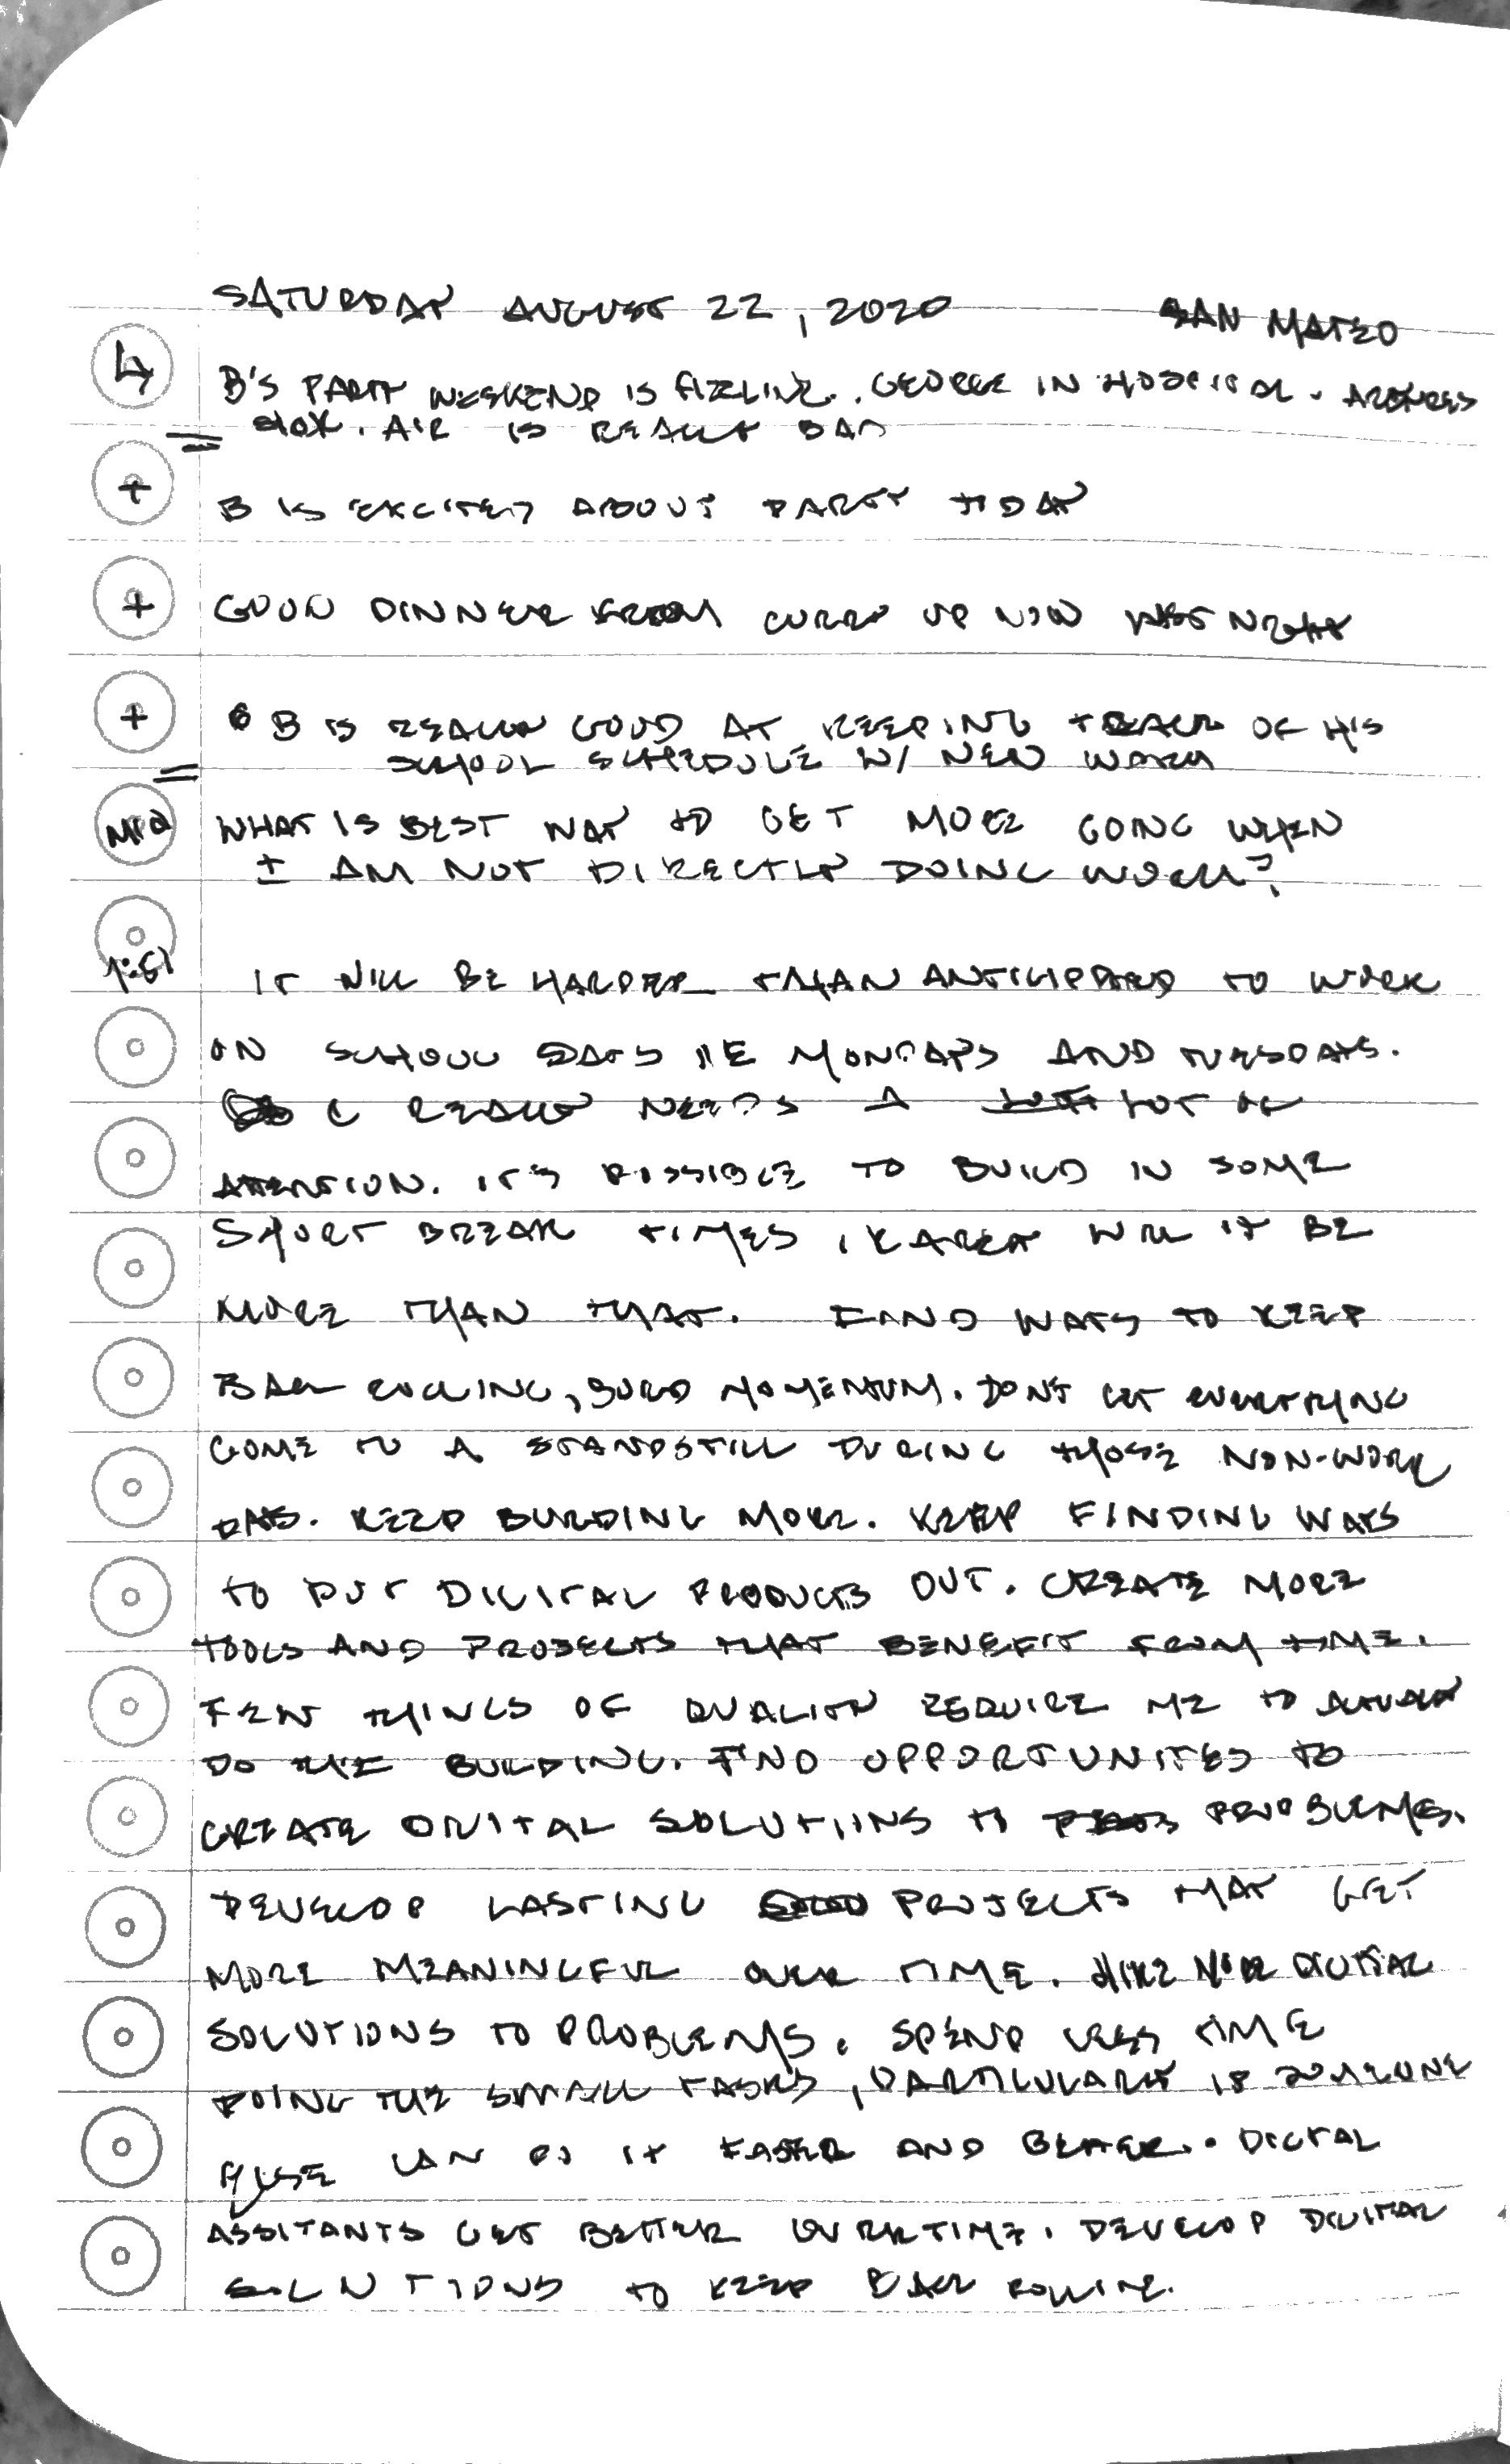 SATURDAY AUGUST 22, 2020 SAN MATEO
4 B'S PARTY WEEKEND IS FIZZLING. GEORGE IN HOSPITAL.
SICK. AIR IS REALLY BAD
+ B IS EXCITED ABOUT PARTY TODAY
+ GOOD DINNER FROM CURRY UP NOW LAST NIGHT
+ B IS REALLY GOOD AT KEEPING TRACK OF HIS
SCHOOL SCHEDULE W/ NEW WATCH
MIQ WHAT IS BEST WAY TO GET MORE GOING WHEN
I AM NOT DIRECTLY DOING WORK?
1:51 IT WILL BE HARDER THAN ANTICIPATED TO WORK
ON SCHOOL DAYS IE MONDAYS AND TUESDAYS.
C REALLY NEEDS A LOT OF
ATTENTION. IT'S POSSIBLE TO BUILD IN SOME
SHORT BREAK TIMES, RARELY WILL IT BE
MORE THAN THAT. FIND WAYS TO KEEP
BALL ROLLING, BUILD MOMENTUM. DON'T LET EVERYTHING
COME TO A STANDSTILL DURING THOSE NON-WORK
DAYS. KEEP BUILDING MORE. KEEP FINDING WAYS
TO PUT DIGITAL PRODUCTS OUT. CREATE MORE
TOOLS AND PROJECTS THAT BENEFIT FROM TIME.
FEW THINGS OF QUALITY REQUIRE ME TO ACTUALLY
DO THE BUILDING. FIND OPPORTUNITES TO
CREATE DIGITAL SOLUTIONS TO PROBLEMS.
DEVELOP LASTING PROJECTS THAT GET
MORE MEANINGFUL OVER TIME. HIRE MORE DIGITAL
SOLUTIONS TO PROBLEMS. SPEND LESS TIME
DOING THE SMALL TASKS, PARTICULARLY IF SOMEONE
ELSE CAN DO IT FASTER AND BETTER. DIGITAL
ASSITANTS GET BETTER OVER TIME. DEVELOP DIGITAL
SOLUTIONS TO KEEP BALL ROLLING.